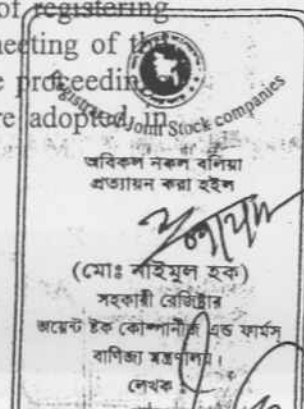 of registering
meeting of the
e proceeding
re adopted in
Registrar of Joint Stock companies
অবিকল নকল বলিয়া
প্রত্যায়ন করা হইল
(মোঃ নাইমুল হক)
সহকারী রেজিষ্ট্রার
জয়েন্ট ষ্টক কোম্পানীজ এন্ড ফার্মস
বাণিজ্য মন্ত্রণালয়।
লেখক